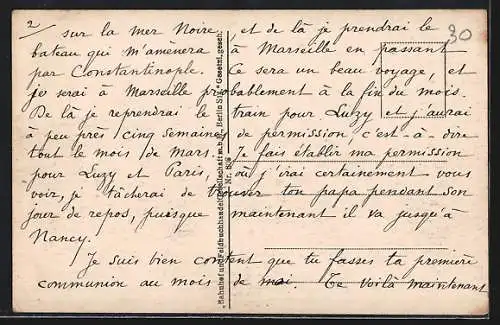 2
30
sur la mer Noire, et de là je prendrai le
bateau qui m'amènera à Marseille en passant
par Constantinople. Ce sera un beau voyage, et
je serai à Marseille probablement à la fin du mois.
De là je reprendrai le train pour Luzy et j'aurai
à peu près cinq semaines de permission c'est-à-dire
tout le mois de Mars. Je fais établir ma permission
pour Luzy et Paris, où j'irai certainement vous
voir, je tâcherai de trouver ton papa pendant son
jour de repos, puisque maintenant il va jusqu'à
Nancy.
Je suis bien content que tu fasses ta première
communion au mois de mai. Te voilà maintenant
Bahnhof und Feldbuchhandel Gesellschaft m.b.H. Berlin S.W. Gesetzl. gesch.